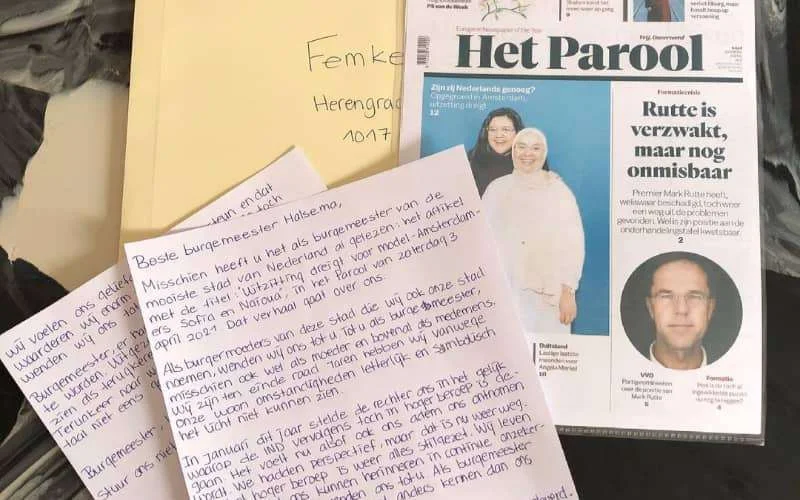 Femke
Herengrac
1017
PS van de Week
European Newspaper of the Year
Het Parool
Zijn zij Nederlands genoeg?
Opgegroeid in Amsterdam,
uitzetting dreigt
12
Formatiecrisis
Rutte is
verzwakt,
maar nog
onmisbaar
Premier Mark Rutte heeft,
weliswaar beschadigd, toch weer
een weg uit de problemen
gevonden. Wel is zijn positie aan de
onderhandelingstafel kwetsbaar
2
Duitsland
Lastige laatste
maanden voor
Angela Merkel
VVD
Partijprominenten
over de positie van
Mark Rutte
5
Formatie
4
Beste burgemeester Halsema,
Misschien heeft u het als burgemeester van de
mooiste stad van Nederland al gelezen: het artikel
met de titel: 'Uitzetting dreigt voor model-Amsterdam-
ers Sofia en Najoua', in het Parool van zaterdag 3
april 2021. Dat verhaal gaat over ons.
Als burgermoeders van deze stad die wij ook onze stad
noemen, wenden wij ons tot u. Tot u als burgemeester,
misschien ook wel als moeder en bovenal als medemens.
Wij zijn ten einde raad. Jaren hebben wij vanwege
onze woon omstandigheden letterlijk en symbolisch
het licht niet kunnen zien.
In januari dit jaar stelde de rechter ons in het gelijk
waarop de IND vervolgens toch in hoger beroep is ge-
gaan. Het voelt nu alsof ook ons adem ons ontnomen
wordt. We hadden perspectief, maar dat is nu weer weg.
hoger beroep is weer alles stilgezet. Wij leven
ons kunnen herinneren in continue onzeker-
wenden ons tot u. Als burgemeester
anders kennen dan ons
steun en dat
toch
wij voelen ons gelief
waarderen wij enorm
wenden wij ons tot
Burgemeester,
te worden. Wij
zien als terugkere
Terugkeer naar
taal niet eens
Burgemeester,
stuur ons niet